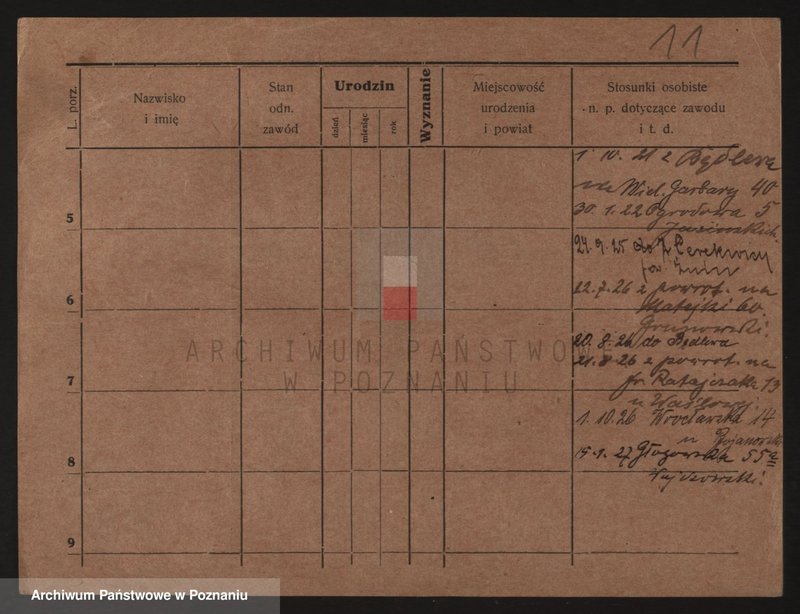 11
L. porz.
Nazwisko
i imię
Stan
odn.
zawód
Urodzin
dzień
miesiąc
rok
Wyznanie
Miejscowość
urodzenia
i powiat
Stosunki osobiste
n. p. dotyczące zawodu
i t. d.
1. 10. 21 z Będlewa
na Wiel. Garbary 40
5
30. 1. 22 Ogrodowa 5
24. 9. 25 do Cerekwicy
pow. Żnin
6
22. 7. 26 z powrot. na
Matejki 60
20. 8. 26 do Będlewa
21. 8. 26 z powrot. na
7
fr. Ratajczaka 13
1. 10. 26 Wrocławska 14
u
8
15. 1. 27 Głogowska 55a
9
ARCHIWUM PAŃSTWO
W POZNANIU
Archiwum Państwowe w Poznaniu